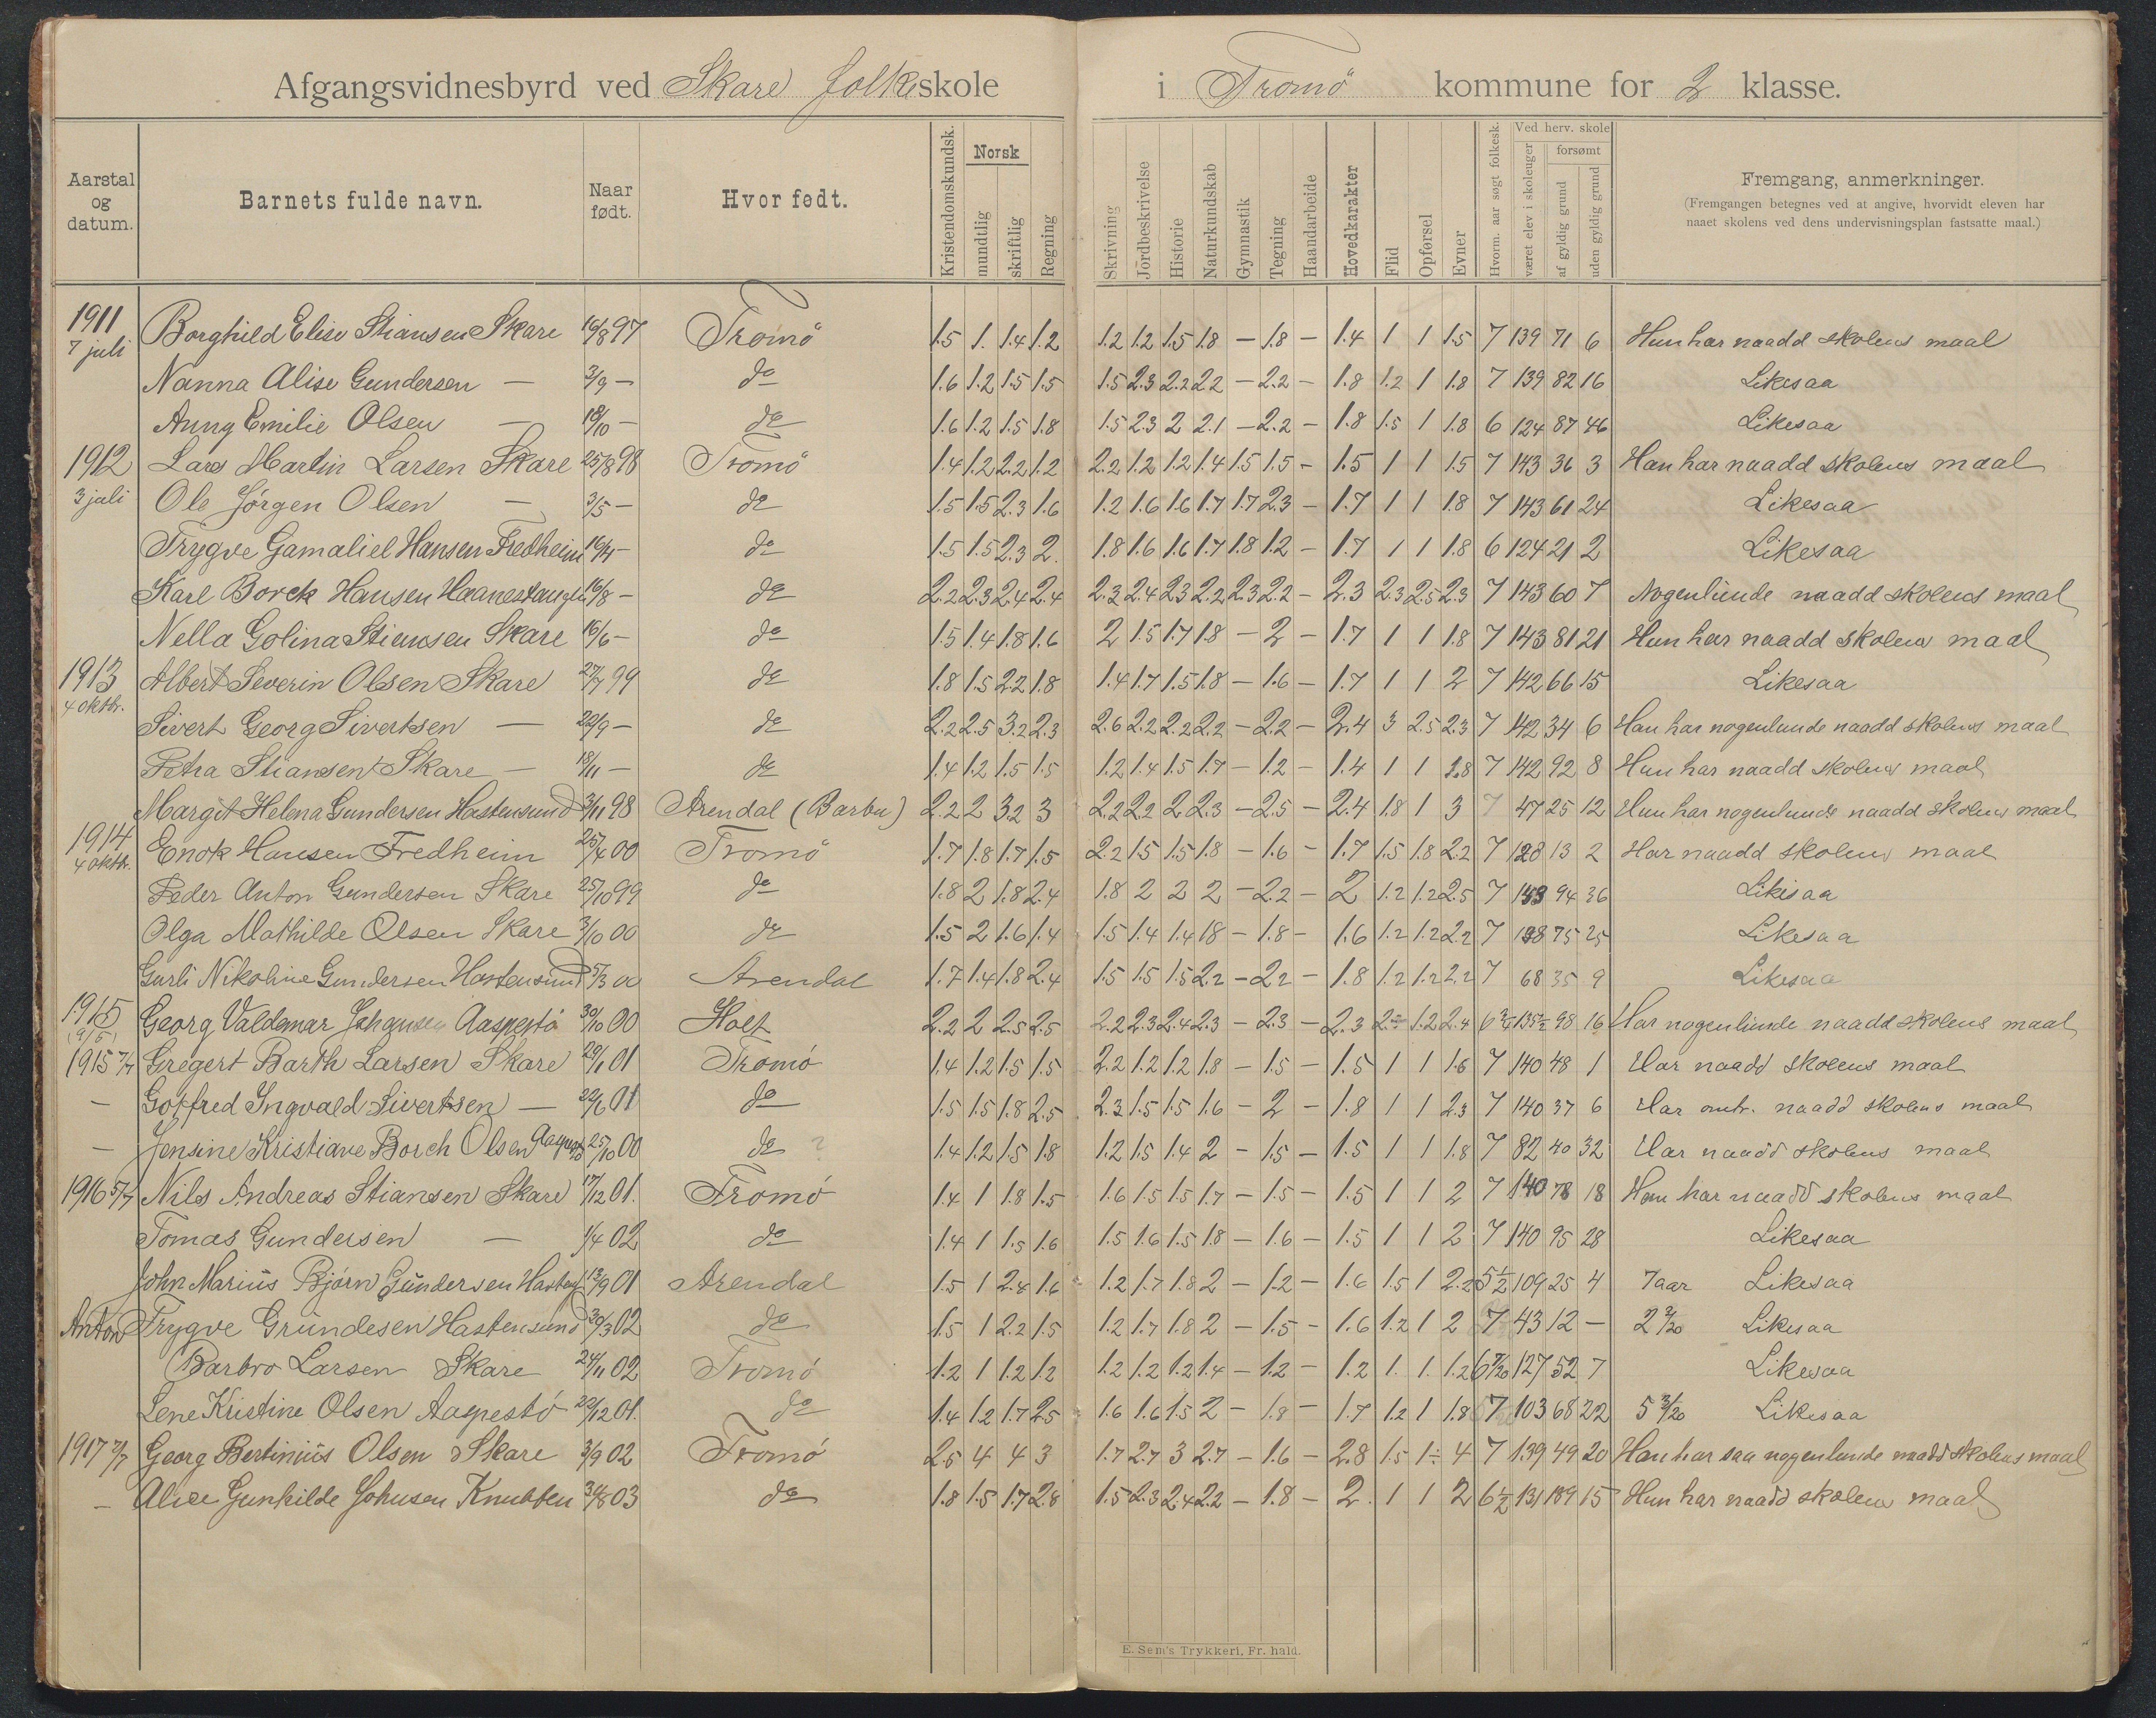 Afgangsvidnesbyrd ved Skare folkeskole i Tromö kommune for 2 klasse.
Aarstal og datum. Barnets fulde navn. Naar født. Hvor født. Kristendomskundsk. Norsk mundtlig skriftlig Regning Skrivning Jordbeskrivelse Historie Naturkundskab Gymnastik Tegning Haandarbeide Hovedkarakter Flid Opførsel Evner Hvorm. aar søgt folkesk. Ved herv. skole været elev i skoleuger forsømt af gyldig grund uden gyldig grund Fremgang, anmerkninger.
(Fremgangen betegnes ved at angive, hvorvidt eleven har naaet skolens ved dens undervisningsplan fastsatte maal.)
1911 7 juli Borghild Elise Stiansen Skare 16/8 97 Tromö 1.5 1. 1.4 1.2 1.2 1.2 1.5 1.8 – 1.8 – 1.4 1 1 1.5 7 139 71 6 Hun har naadd skolens maal
Nanna Alise Gundersen — 3/9 – do 1.6 1.2 1.5 1.5 1.5 2.3 2.2 2.2 – 2.2 – 1.8 1.2 1 1.8 7 139 82 16 Likesaa
Anny Emilie Olsen — 18/10 – do 1.6 1.2 1.5 1.8 1.5 2.3 2 2.1 – 2.2 – 1.8 1.5 1 1.8 6 124 87 46 Likesaa
1912 Lars Martin Larsen Skare 25/8 98 Tromö 1.4 1.2 2.2 1.2 2.2 1.2 1.2 1.4 1.5 1.5 – 1.5 1 1 1.5 7 143 36 3 Han har naadd skolens maal
3 juli Ole Jørgen Olsen — 3/5 – do 1.5 1.5 2.3 1.6 1.2 1.6 1.6 1.7 1.7 2.3 – 1.7 1 1 1.8 7 143 61 24 Likesaa
Trygve Gamaliel Hansen Fredheim 16/4 – do 1.5 1.5 2.3 2. 1.8 1.6 1.6 1.7 1.8 1.2 – 1.7 1 1 1.8 6 124 21 2 Likesaa
Karl Borck Hansen 16/8 – do 2.2 2.3 2.4 2.4 2.3 2.4 2.3 2.2 2.3 2.2 – 2.3 2.3 2.5 2.3 7 143 60 7 Nogenlunde naadd skolens maal
Nella Golina Stiansen Skare 16/6 – do 1.5 1.4 1.8 1.6 2 1.5 1.7 1.8 – 2 – 1.7 1 1 1.8 7 143 81 21 Hun har naadd skolens maal
1913 4 oktbr. Albert Severin Olsen Skare 27/7 99 do 1.8 1.5 2.2 1.8 1.4 1.7 1.5 1.8 – 1.6 – 1.7 1 1 2 7 142 66 15 Likesaa
Sivert Georg Sivertsen — 22/9 – do 2.2 2.5 3.2 2.3 2.6 2.2 2.2 2.2 – 2.2 – 2.4 3 2.5 2.3 7 142 34 6 Han har nogenlunde naadd skolens maal
Petra Stiansen Skare — 18/11 – do 1.4 1.2 1.5 1.5 1.2 1.4 1.5 1.7 – 1.2 – 1.4 1 1 1.8 7 142 92 8 Hun har naadd skolens maal
Margit Helena Gundersen Hastensund 3/11 98 Arendal (Barbu) 2.2 2 3.2 3 2.2 2.2 2 2.3 – 2.5 – 2.4 1.8 1 3 7 47 25 12 Hun har nogenlunde naadd skolens maal
1914 4 oktbr. Enok Hansen Fredheim 25/4 00 Tromö 1.7 1.8 1.7 1.5 2.2 1.5 1.5 1.8 – 1.6 – 1.7 1.5 1.8 2.2 7 128 13 2 Har naadd skolens maal
Peder Anton Gundersen Skare 25/10 99 do 1.8 2 1.8 2.4 1.8 2 2 2 – 2.2 – 2 1.2 1.2 2.5 7 94 36 Likesaa
Olga Mathilde Olsen Skare 3/10 00 do 1.5 2 1.6 1.4 1.5 1.4 1.4 1.8 – 1.8 – 1.6 1.2 1.2 2.2 7 138 75 25 Likesaa
Gurli Nikoline Gundersen Hastensund 5/3 00 Arendal 1.7 1.4 1.8 2.4 1.5 1.5 1.5 2.2 – 2.2 – 1.8 1.2 1.2 2.2 7 68 35 9 Likesaa
1915 (9/5) Georg Valdemar Johansen Aaspestö 30/10 00 Holt 2.2 2 2.5 2.5 2.2 2.3 2.4 2.3 – 2.3 – 2.3 2÷ 1.2 2.4 6 3/4 135 1/2 98 16 Har nogenlunde naadd skolens maal
1915 7/7 Gregert Barth Larsen Skare 29/1 01 Tromö 1.4 1.2 1.5 1.5 2.2 1.2 1.2 1.8 – 1.5 – 1.5 1 1 1.6 7 140 48 1 Har naadd skolens maal
— Gotfred Ingvald Sivertsen — 22/6 01 do 1.5 1.5 1.8 2.5 2.3 1.5 1.5 1.6 – 2 – 1.8 1 1 2.3 7 140 37 6 Har omtr. naadd skolens maal
— Jensine Kristiane Borch Olsen Aaspestö 25/10 00 do ? 1.4 1.2 1.5 1.8 1.2 1.5 1.4 2 – 1.5 – 1.5 1 1 1.8 7 82 40 32 Har naadd skolens maal
1916 5/7 Nils Andreas Stiansen Skare 17/12 01. Tromö 1.4 1 1.8 1.5 1.6 1.5 1.5 1.7 – 1.5 – 1.5 1 1 2 7 140 78 18 Han har naadd skolens maal
Tomas Gundersen — 1/4 02 do 1.4 1 1.5 1.6 1.5 1.6 1.5 1.8 – 1.6 – 1.5 1 1 2 7 140 95 28 Likesaa
John Marius Bjørn Gundersen 13/9 01 Arendal 1.5 1 2.4 1.6 1.2 1.7 1.8 2 – 1.2 – 1.6 1.5 1 2.2 5 1/2 109 25 4 7 aar Likesaa
Anton Trygve Grundesen Hastensund 30/3 02 do 1.5 1 2.2 1.5 1.2 1.7 1.8 2 – 1.5 – 1.6 1.2 1 2 7 43 12 – 2 3/20 Likesaa
Barbro Larsen Skare 24/11 02 Tromö 1.2 1 1.2 1.2 1.2 1.2 1.2 1.4 – 1.2 – 1.2 1. 1. 1.2 6 7/20 127 52 7 Likesaa
Lene Kristine Olsen Aaspestö 29/12 01. do 1.4 1.2 1.7 2.5 1.6 1.6 1.5 2 – 1.8 – 1.7 1.2 1 1.8 7 103 68 22 5 3/20 Likesaa
1917 7/7 Georg Bertinius Olsen Skare 3/9 02 Tromö 2.5 4 4 3 1.7 2.7 3 2.7 – 1.6 – 2.8 1.5 1÷ 4 7 139 49 20 Han har saa nogenlunde naadd skolens maal
— Alice Gunhilde Johnsen Knubben 30/8 03 do 1.8 1.5 1.7 2.8 1.5 2.3 2.4 2.2 – 1.8 – 2. 1 1 2 6 1/2 131 109 15 Hun har naadd skolens maal
E. Sem's Trykkeri, Fr. hald.